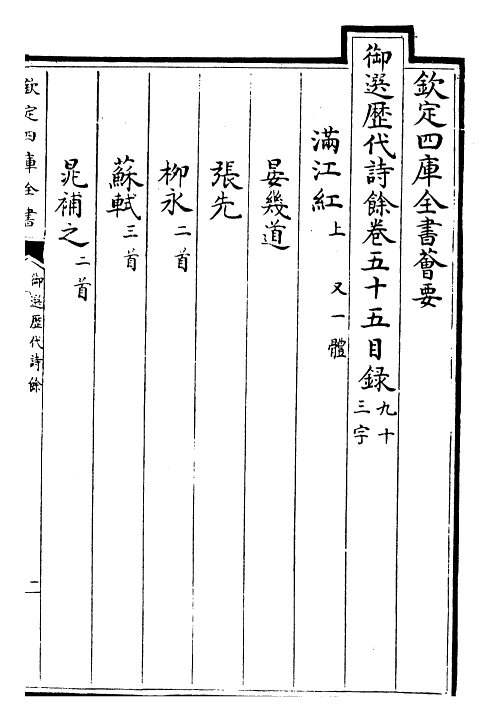 欽定四庫全書薈要
御選歷代詩餘卷五十五目録九十三字
滿江紅上 又一體
晏幾道
張先
柳永二首
蘇軾三首
晁補之二首
欽定四庫全書
御選歷代詩餘
二